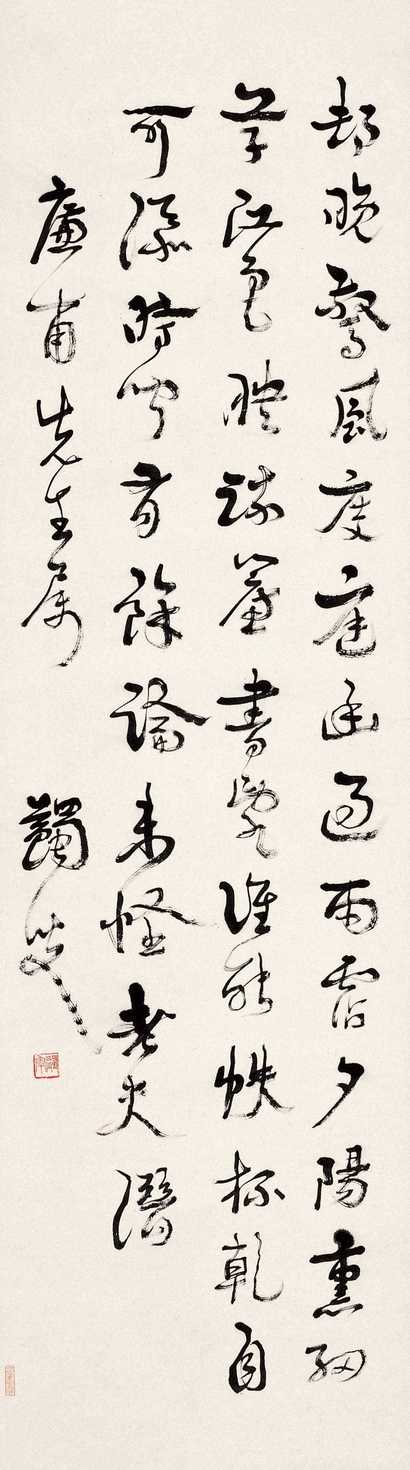 邨晚驚風度庭幽過雨霑夕陽熏細
草江色映疏簾書亂誰能帙杯乾自
可添時聞有餘論未怪老夫潛
廉甫先生屬
蠲叟